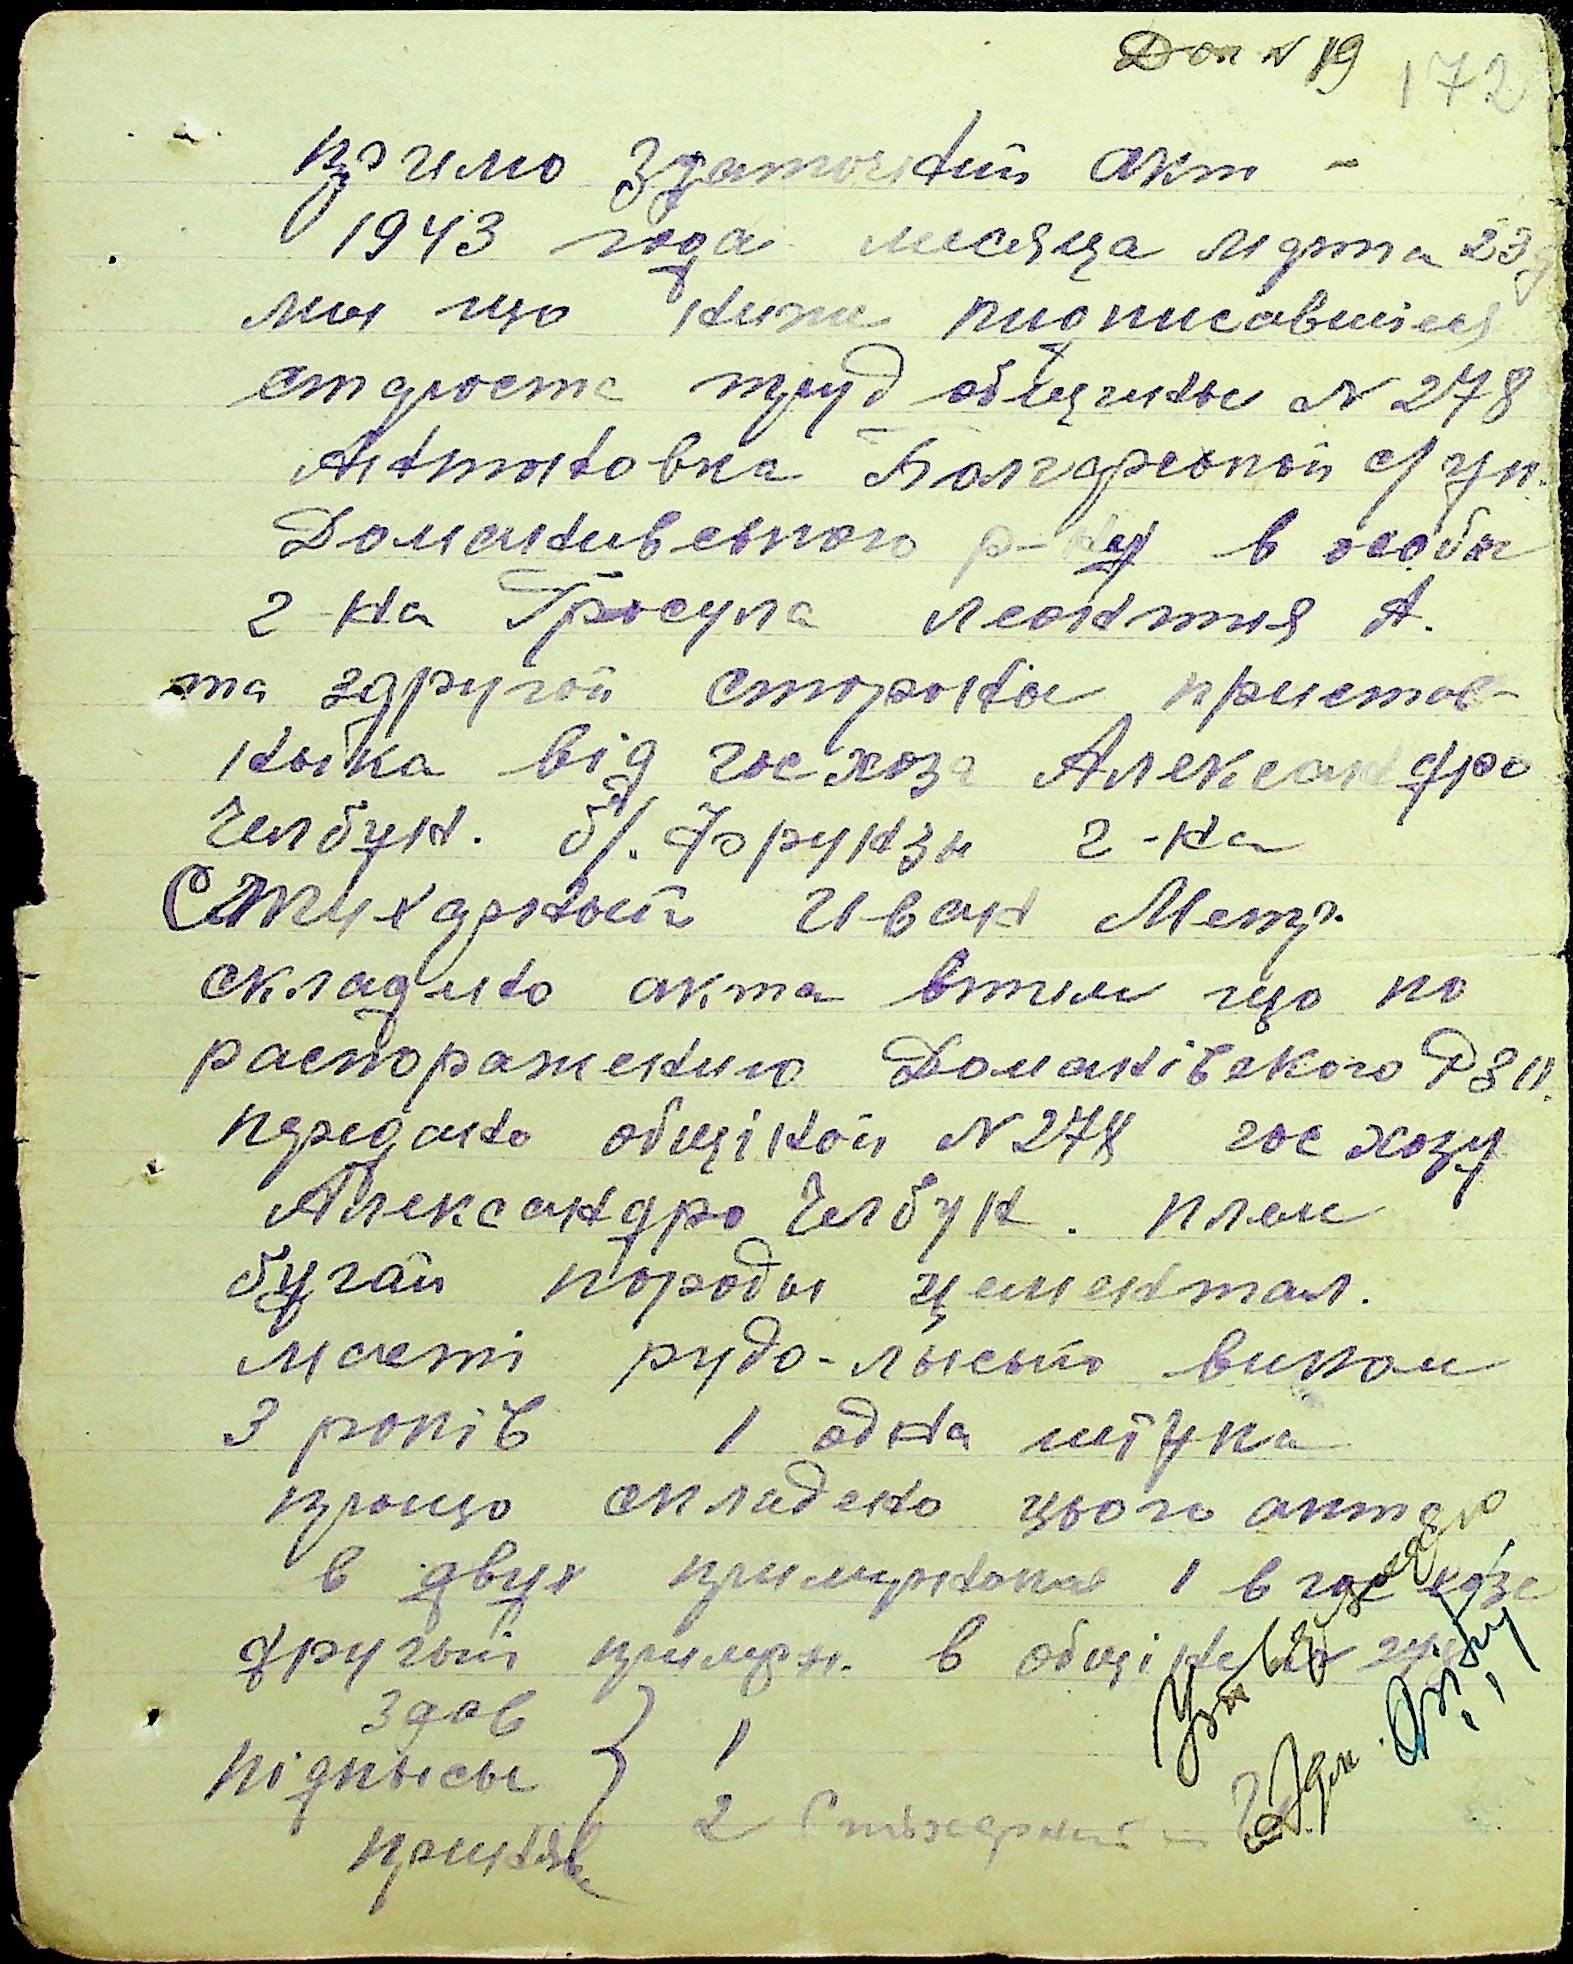 Док N 19 172
прiимо здаточний акт -
1943 года месяца марта 23 д
мы що ниже пидписавшися
староста труд общины N 278
Антоновка Болгарской с/ уп.
Доманивського р-ну в особи
г-на Гросула Леонтия А.
та здругой стороны приемов-
ныка від госхоза Александро
Челбун. б/. Фрунзы г-на
Стихарный Иван Метр.
складино акта втим що по
распоражению Доманівского РЗП.
передано общіной N 278 госхозу
Александро Челбун. плем
бугай породы цементал.
масті рудо-лысый виком
3 років 1 одна штука
прощо складено цього акта
в двух примирнопах 1 в госхозе
другый примирн. в общіни
Здав
підписы } 1
приняв 2 Стыхарный
Утверждаю